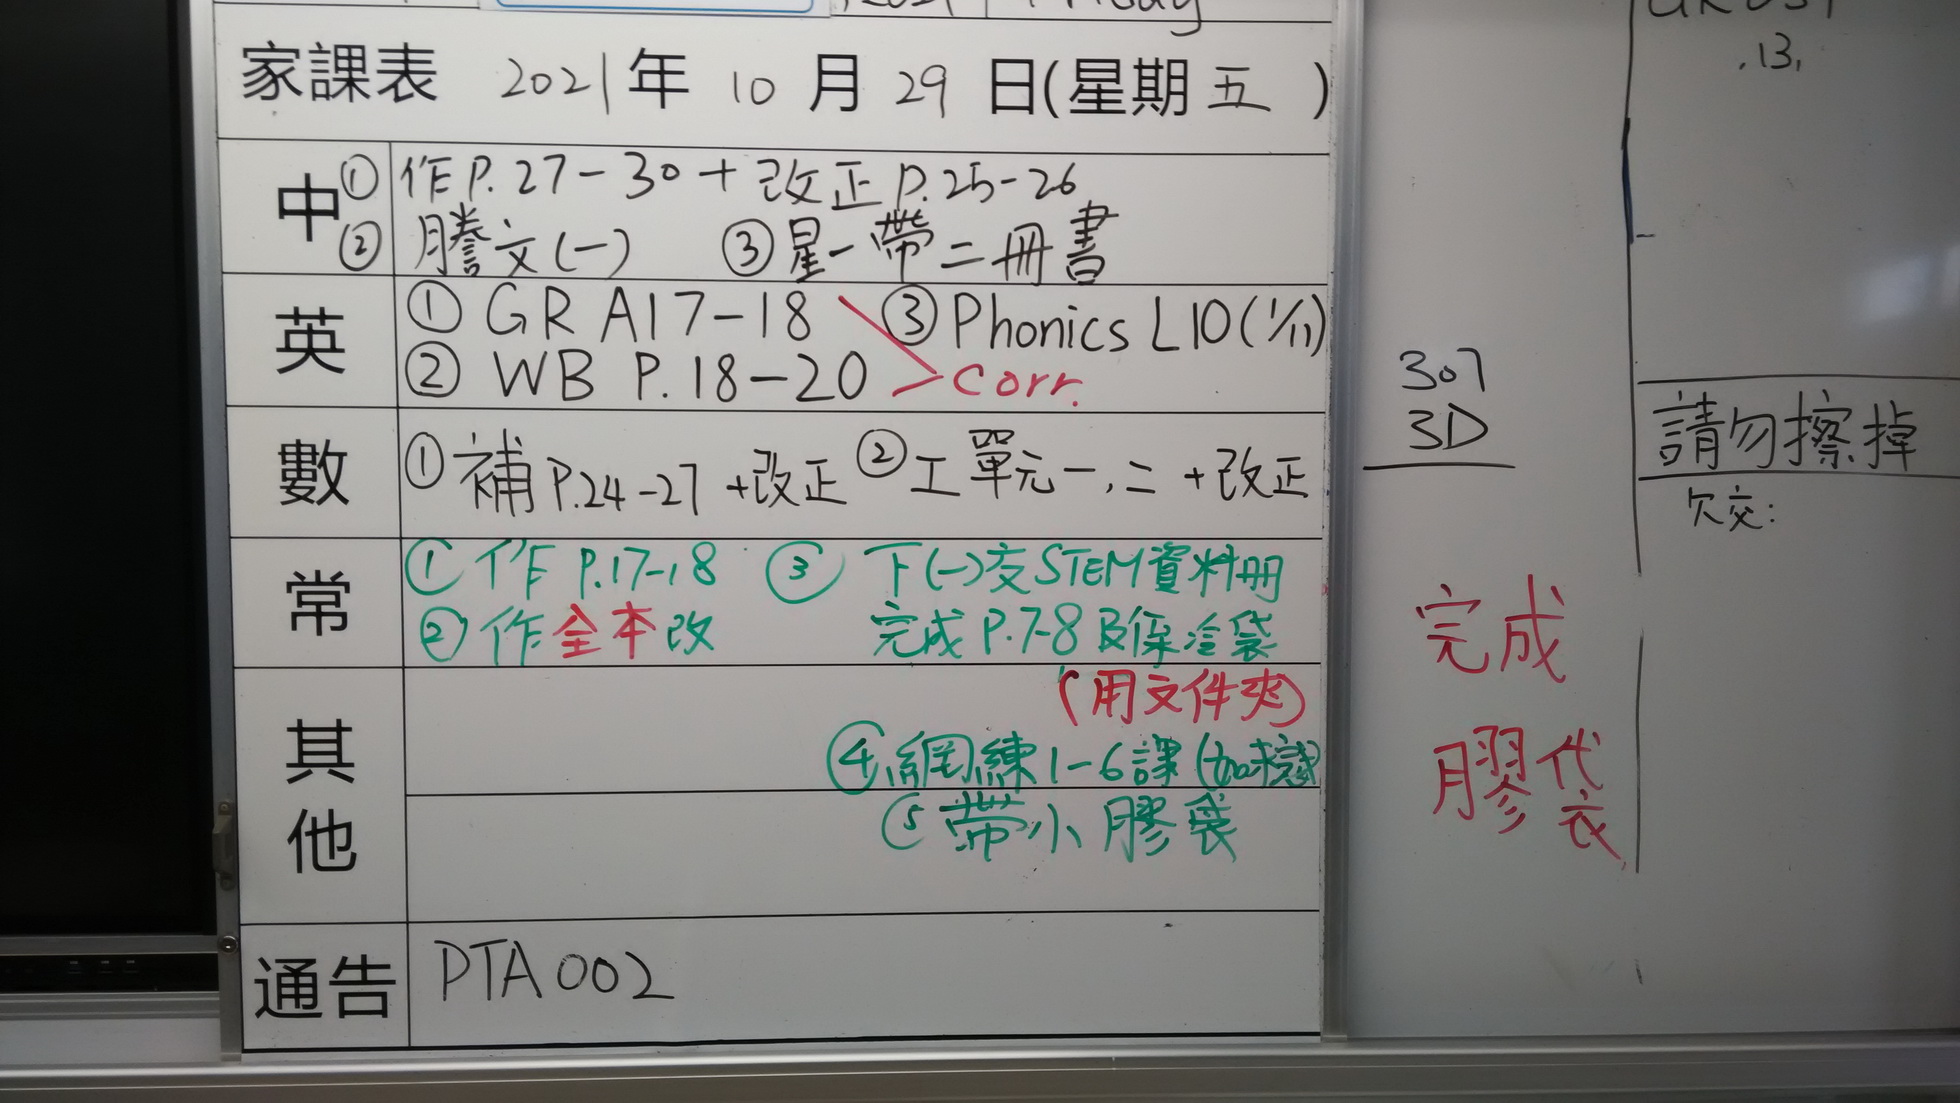 家課表 2021年 10 月 29 日(星期 五 )
中 ① 作P.27-30 + 改正P.25-26
② 謄文(一) ③ 星一帶二冊書
英 ① GR A17-18 ③ Phonics L10(1/11)
② WB P.18-20 > corr.
數 ① 補P.24-27 +改正 ② 工單元一,二 +改正
常 ① 作 P.17-18 ③ 下(一)交STEM資料冊
② 作全本改 完成 P.7-8 及保冷袋
其他 (用文件夾)
④ 網練1-6課
⑤ 帶小膠袋
通告 PTA002
307
3D
完成
膠袋
.13,
請勿擦掉
欠交: